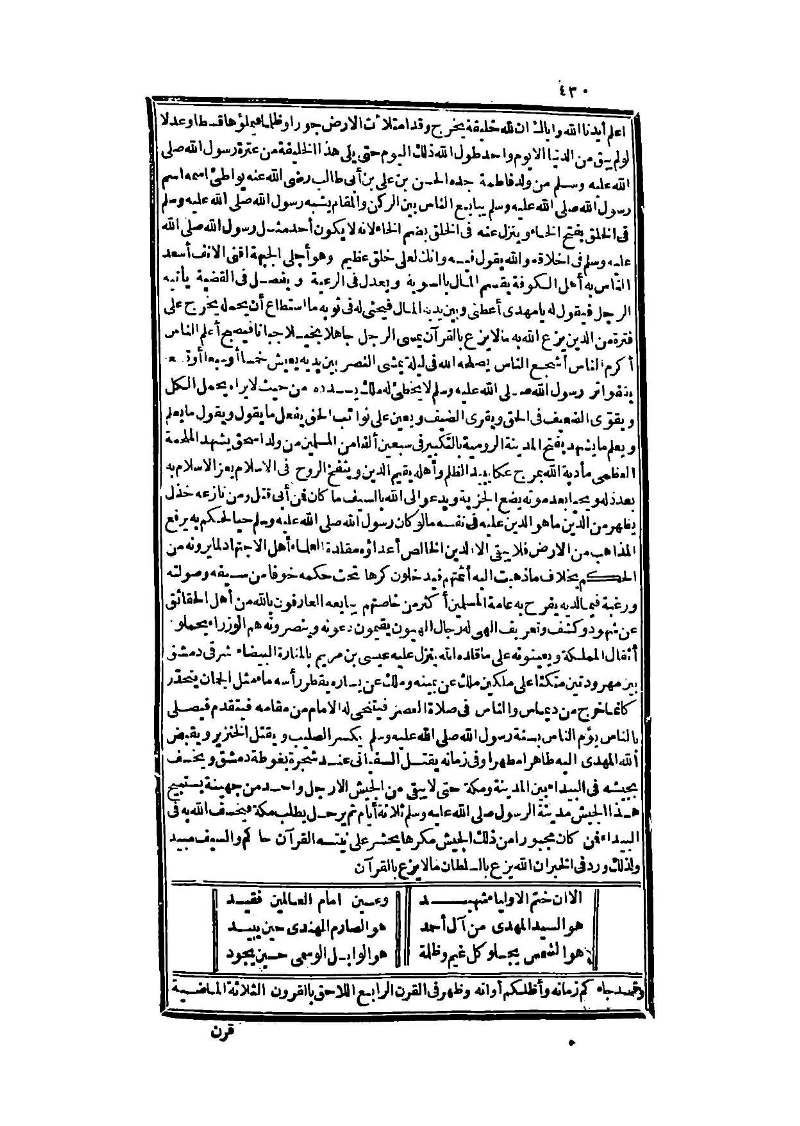 ٤٣٠
اعلم أيدنا الله واياك ان لله خليفة يخرج وقد امتلأت الارض جورا وظلما فيملؤها قسطا وعدلا
لولم يبق من الدنيا الا يوم واحد طول الله ذلك اليوم حتى يلي هذا الخليفة من عترة رسول الله صلى
الله عليه وسلم من ولد فاطمة جده الحسن بن على بن أبى طالب رضى الله عنه يواطئ اسمه اسم
رسول الله صلى الله عليه وسلم يبايع الناس بين الركن والمقام يشبه رسول الله صلى الله عليه وسلم
فى الخلق بفتح الخاء وينزل عنه فى الخلق بضم الخاء لانه لا يكون أحد مثل رسول الله صلى الله
عليه وسلم فى اخلاقه والله يقول فيه وانك لعلى خلق عظيم وهو أجلى الجبهة اقنى الانف أسعد
الناس به أهل الكوفة يقسم المال بالسوية ويعدل فى الرعية ويفصل فى القضية يأتيه
الرجل فيقول له يا مهدى أعطنى وبين يديه المال فيحثى له فى ثوبه ما استطاع أن يحمله يخرج على
فترة من الدين يزع الله به مالا يزع بالقرآن يمسى الرجل جاهلا بخيلا جبانا فيصبح أعلم الناس
أكرم الناس أشجع الناس يصلحه الله فى ليلة يمشى النصر بين يديه يعيش خمسا أو سبعا أو تسعا
يقفو أثر رسول الله صلى الله عليه وسلم لا يخطئ له ملك يسدده من حيث لا يراه يحمل الكل
ويقوى الضعيف فى الحق ويقرى الضيف ويعين على نوائب الحق يفعل ما يقول ويقول ما يعلم
ويعلم ما يشهد يفتح المدينة الرومية بالتكبير فى سبعين ألفا من المسلمين من ولد اسحق يشهد الملحمة
العظمى مأدبة الله بمرج عكا يبيد الظلم وأهله يقيم الدين وينفخ الروح فى الاسلام يعز الاسلام به
بعد ذله ويحيا بعد موته يضع الجزية ويدعو الى الله بالسيف ما كان فمن أبى قتل ومن نازعه خذل
يظهر من الدين ما هو الدين عليه فى نفسه مالو كان رسول الله صلى الله عليه وسلم حيا لحكم به يرفع
المذاهب من الارض فلا يبقى الا الدين الخالص أعداؤه مقلدة العلماء أهل الاجتهاد لما يرونه من
الحكم بخلاف ما ذهبت اليه أئمتهم فيدخلون كرها تحت حكمه خوفا من سيفه وصولته
ورغبة فيما لديه يفرح به عامة المسلمين أكثر من خاصتهم يبايعه العارفون بالله من أهل الحقائق
عن شهود وكشف وتعريف الهى له رجال الهيون يقيمون دعوته وينصرونه هم الوزراء يحملون
أثقال المملكة ويعينونه على ما قلده الله ينزل عليه عيسى بن مريم بالمنارة البيضاء شرقى دمشق
بين مهرودتين متكئا على ملكين ملك عن يمينه وملك عن يساره يقطر رأسه ماء مثل الجمان يتحدر
كأنما خرج من ديماس والناس فى صلاة العصر فيتنحى له الامام من مقامه فيتقدم فيصلى
بالناس يؤم الناس بسنة رسول الله صلى الله عليه وسلم يكسر الصليب ويقتل الخنزير ويقبض
الله المهدى اليه طاهرا مطهرا وفى زمانه يقتل السفيانى عند شجرة بغوطة دمشق ويخسف
بجيشه فى البيداء بين المدينة ومكة حتى لا يبقى من الجيش الا رجل واحد من جهينة يستبيح
هذا الجيش مدينة الرسول صلى الله عليه وسلم ثلاثة أيام ثم يرحل يطلب مكة فيخسف الله به فى
البيداء فمن كان مجبورا من ذلك الجيش مكرها يحشر على نيته القرآن حاكم والسيف مبيد
ولذلك ورد فى الخبران الله يزع بالسلطان مالا يزع بالقرآن
الا ان ختم الاولياء شهيد وعين امام العالمين فقيد
هو السيد المهدى من آل أحمد هو الصارم الهندى حين يبيد
هو الشمس يجلو كل غيم وظلمة هو الوابل الوسمى حين يجود
وقد جاءكم زمانه وأظلكم أوانه وظهر فى القرن الرابع اللاحق بالقرون الثلاثة الماضية
قرن